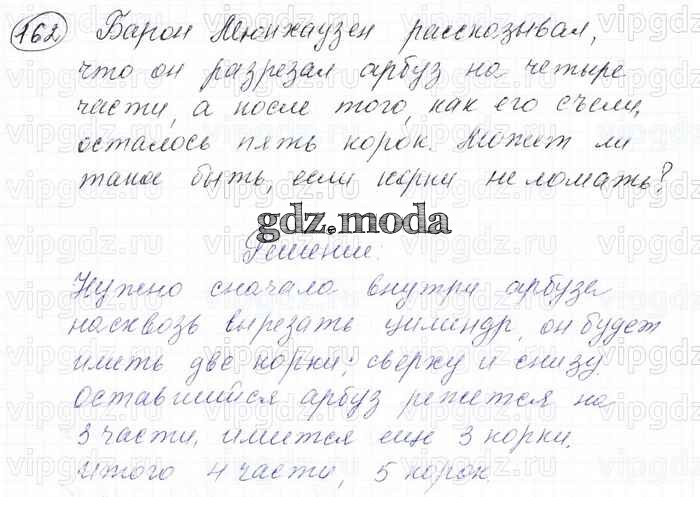 162 Барон Мюнхаузен рассказывал,
что он разрезал арбуз на четыре
части, а после того, как его съели,
осталось пять корок. Может ли
такое быть, если корки не ломать?
gdz.moda
Решение:
Нужно сначала внутри арбуза
насквозь вырезать цилиндр, он будет
иметь две корки: сверху и снизу.
Оставшийся арбуз режется на
3 части, имеется еще 3 корки.
Итого 4 части, 5 корок.